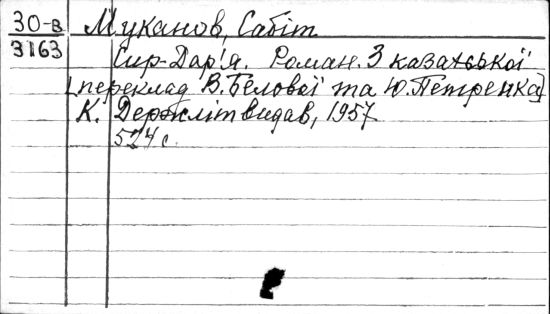 30-в Муканов, Сабіт
3163
Сир-Дар'я. Роман. З казахської
[переклад В.Бєлової та Ю.Петренка]
К. Держлітвидав, 1957
524 с.